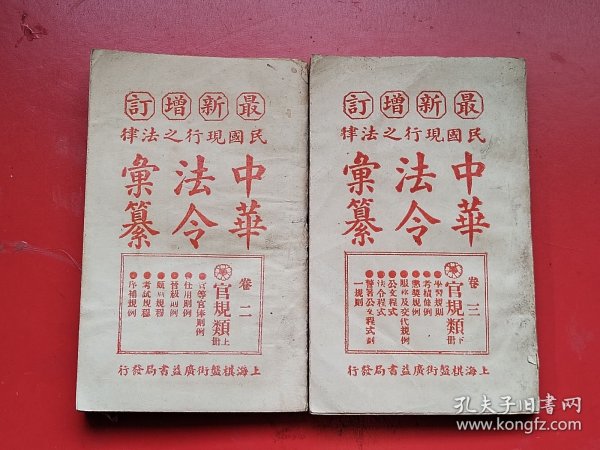 最新增訂
民國現行之法律
中華
法令
彙纂
卷二
官規類上冊
●官等官俸則例
●任用則例
●晉級則例
●考試規程
●序補規例
上海棋盤街廣益書局發行
最新增訂
民國現行之法律
中華
法令
彙纂
卷三
官規類下冊
●學習規則
●考績條例
●懲獎規例
●服務及交代規例
●公文程式
●法令程式
●警署公文程式劃
一規則
上海棋盤街廣益書局發行
孔夫子旧书网
www.kongfz.com